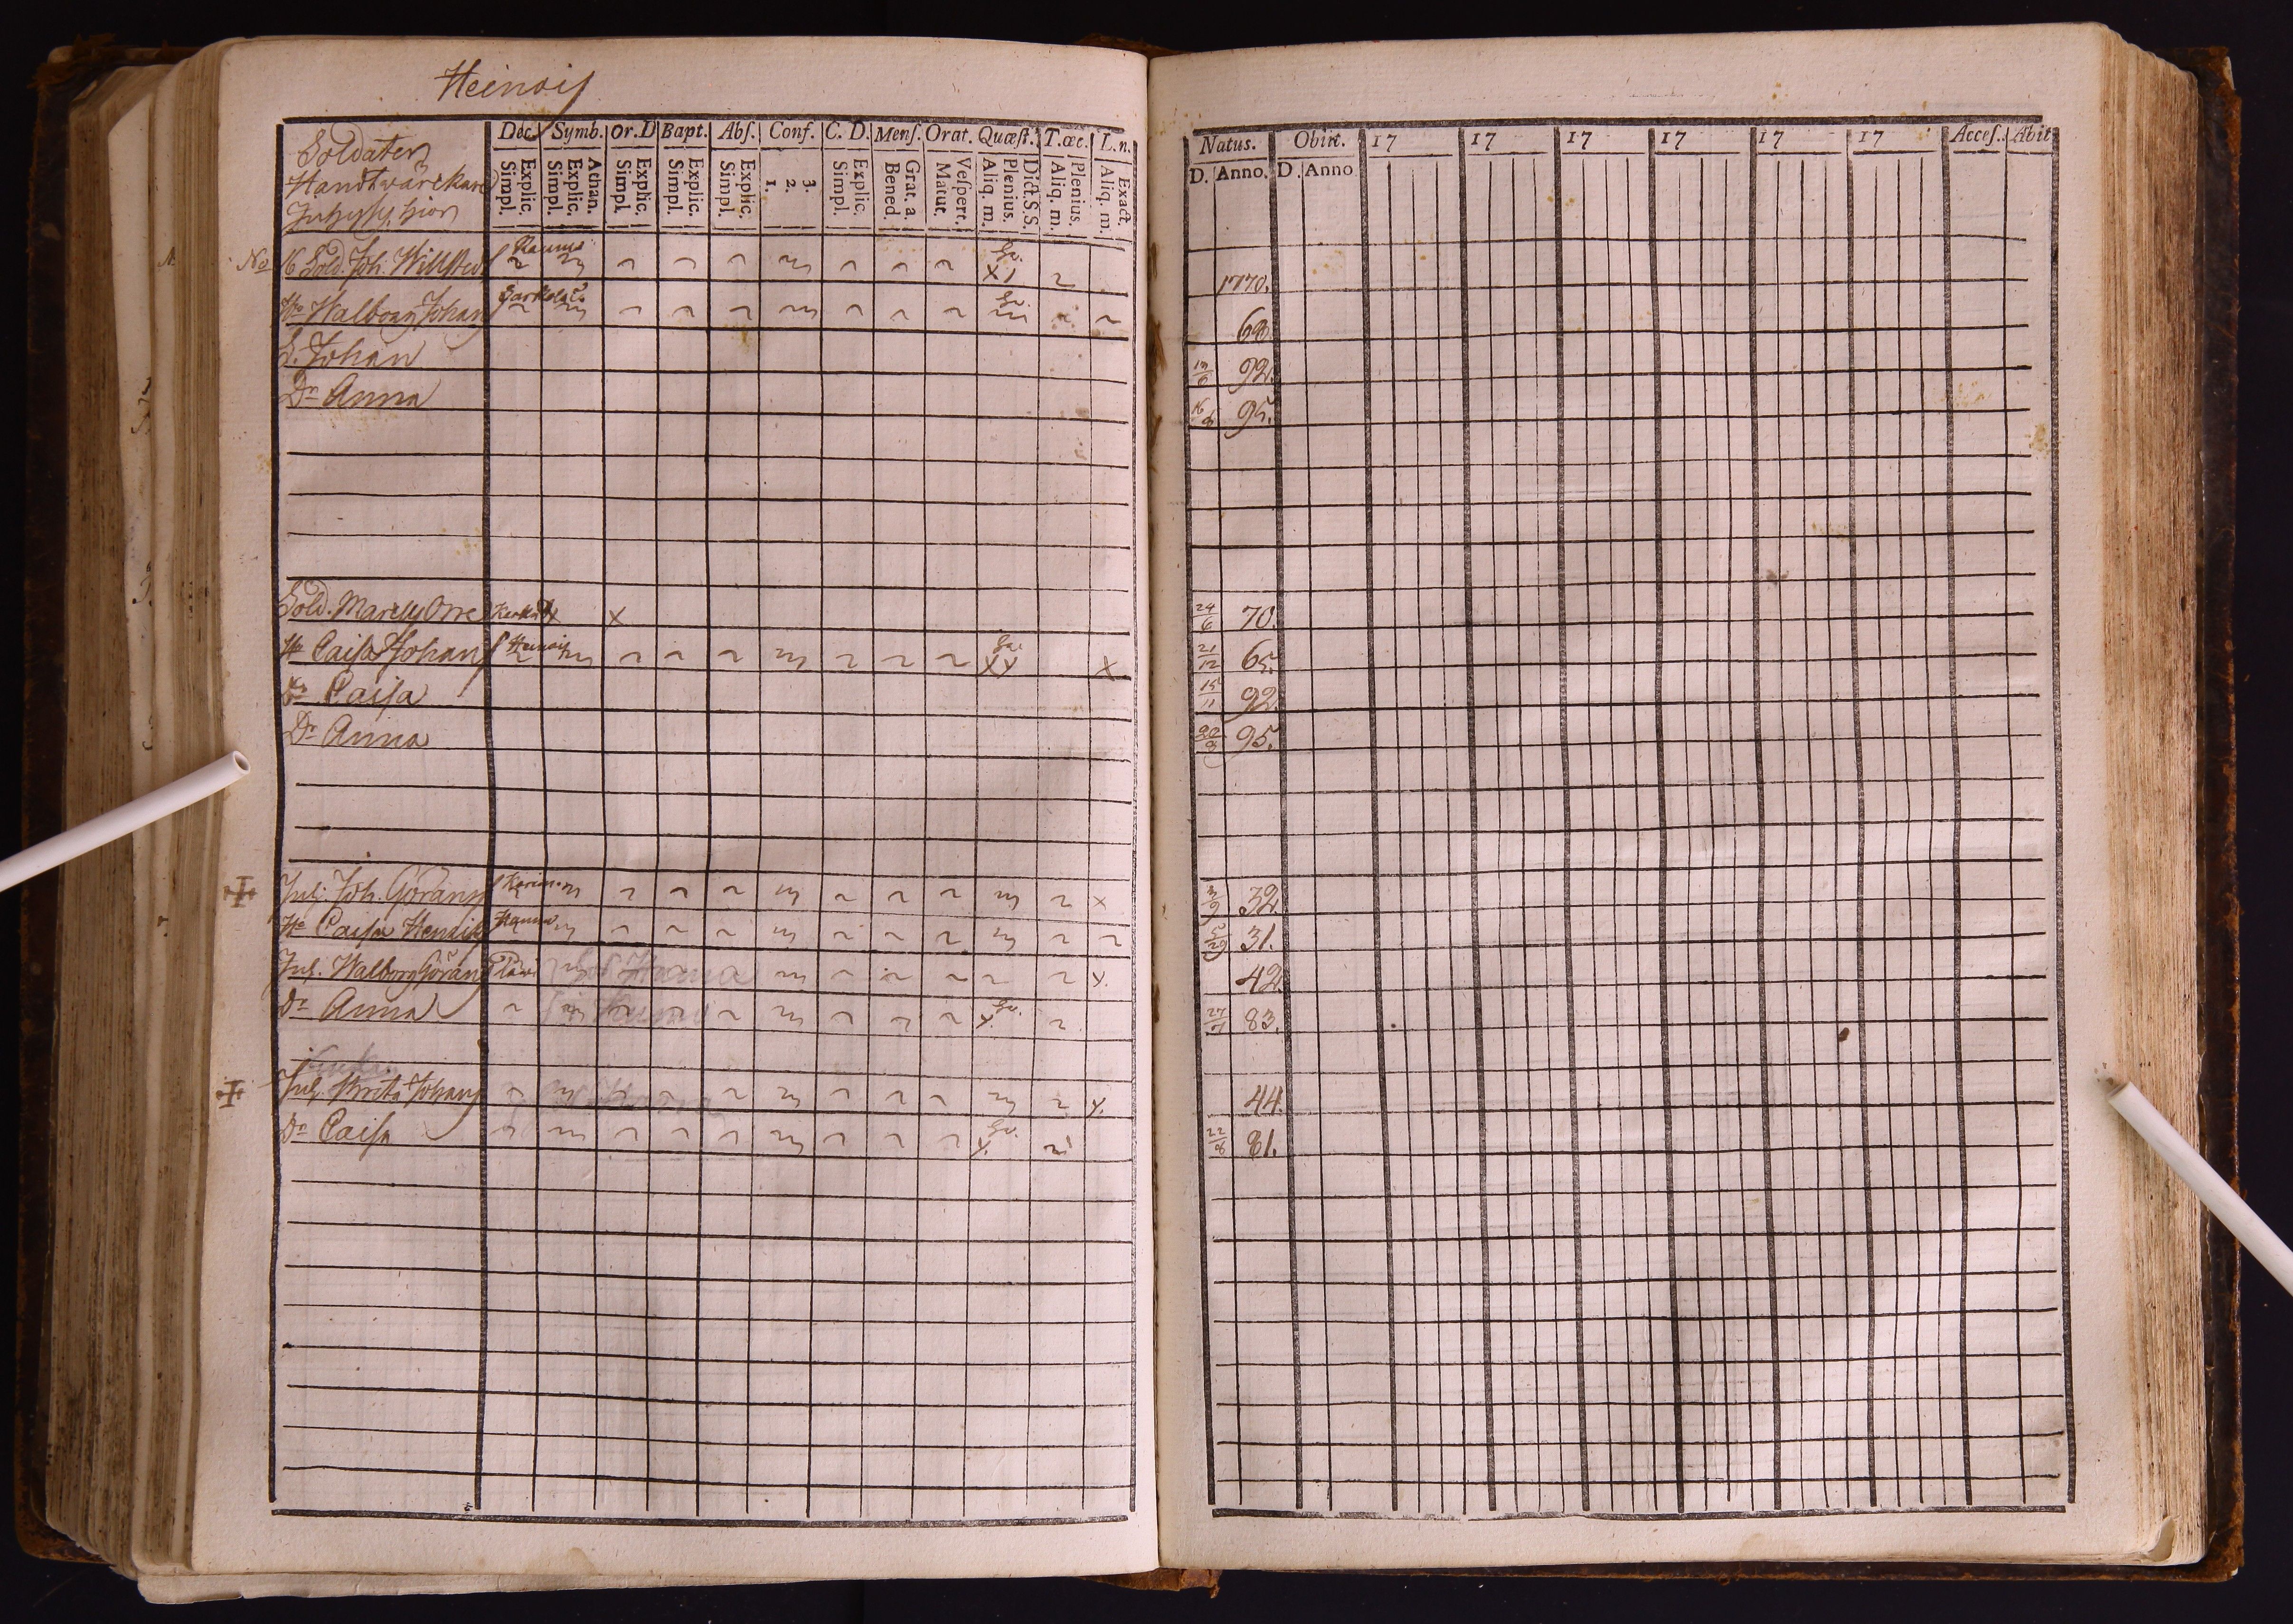 Heinois
Soldater
Handtwärckare
Natus. Obiit. 17 17 17 17 17 17 Acceſ. Abiit
Dec. Symb. Or. D Bapt. Abſ. Conf. C. D. Menſ. Orat. Quæſt. T. œc. L. n.
D. Anno. D. Anno
Simpl. Explic. Simpl. Explic. Athan. Simpl. Explic. Simpl. Explic. Simpl. Explic. 1. 2. 3. Simpl. Explic. Bened. Grat. a. Matut. Veſpert. Aliq. m. Plenius. Dict. S.S. Aliq. m. Plenius. Aliq. m. Exact.
No 16 Sold. Joh. Willsted 1770.
Hu Walborg Johans 68
S. Johan 92.
Dr Anna 16/8 95.
Sold. Marcus Orre x 24/6 70.
Hu Caisa Johans Heinois 21/12 65.
Dr Caisa 15/11 92.
Dr Anna 95.
Inh. Joh. Görans 3/9 32.
Hu Caisa Hendiks 31.
Inh. Walborg Görans 42.
Dr Anna 27/7 83.
Inh. Brita Johans 44.
Dr Caisa 22/8 81.